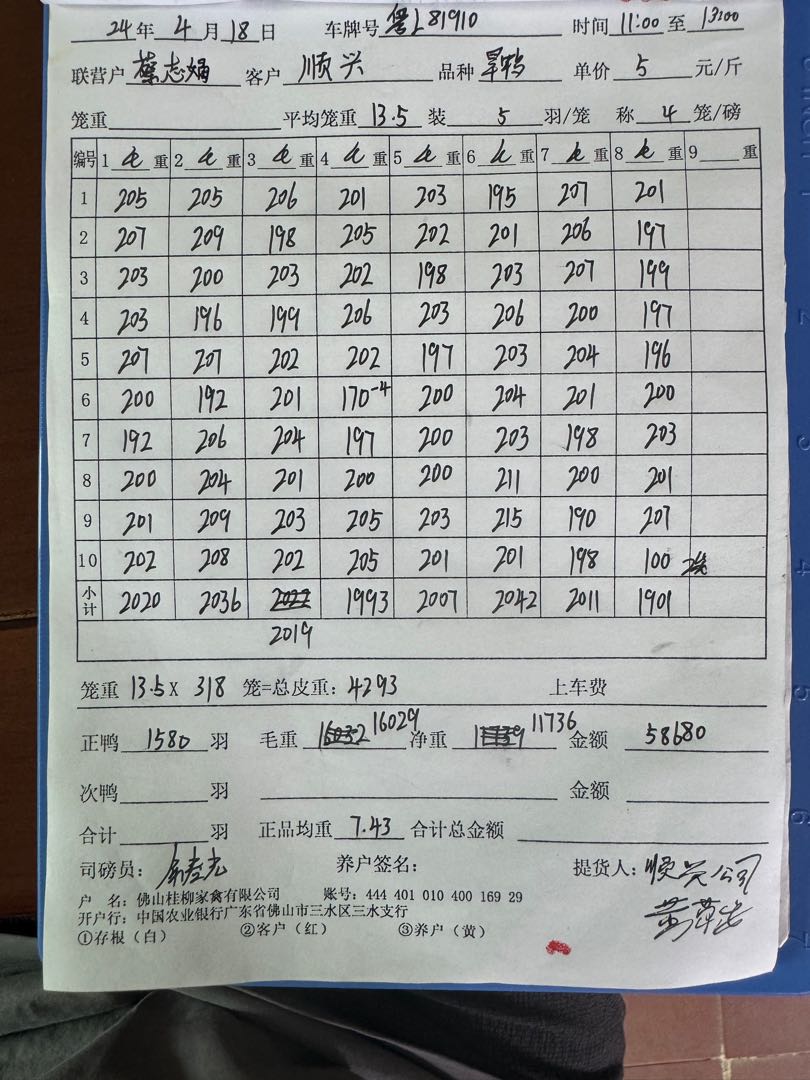 24年 4月18日 车牌号 粤L81910 时间 11:00 至 13:00
联营户 蔡志娟 客户 顺兴 品种 旱鸭 单价 5 元/斤
笼重 平均笼重 13.5 装 5 羽/笼 称 4 笼/磅
编号 1 毛 重 2 毛 重 3 毛 重 4 毛 重 5 毛 重 6 毛 重 7 毛 重 8 毛 重 9 重
1 205 205 206 201 203 195 207 201
2 207 209 198 205 202 201 206 197
3 203 200 203 202 198 203 207 199
4 203 196 199 206 203 206 200 197
5 207 207 202 202 197 203 204 196
6 200 192 201 170-4 200 204 201 200
7 192 206 204 197 200 203 198 203
8 200 204 201 200 200 211 200 201
9 201 209 203 205 203 215 190 207
10 202 208 202 205 201 201 198 100
小计 2020 2036 2022 1993 2007 2042 2011 1901
2019
笼重 13.5 X 318 笼=总皮重: 4293 上车费
正鸭 1580 羽 毛重 16032 16029 净重 11736 金额 58680
次鸭 羽 金额
合计 羽 正品均重 7.43 合计总金额
司磅员: 养户签名: 提货人: 顺兴公司
户 名: 佛山桂柳家禽有限公司 账号: 444 401 010 400 169 29
开户行: 中国农业银行广东省佛山市三水区三水支行
①存根(白) ②客户(红) ③养户(黄)